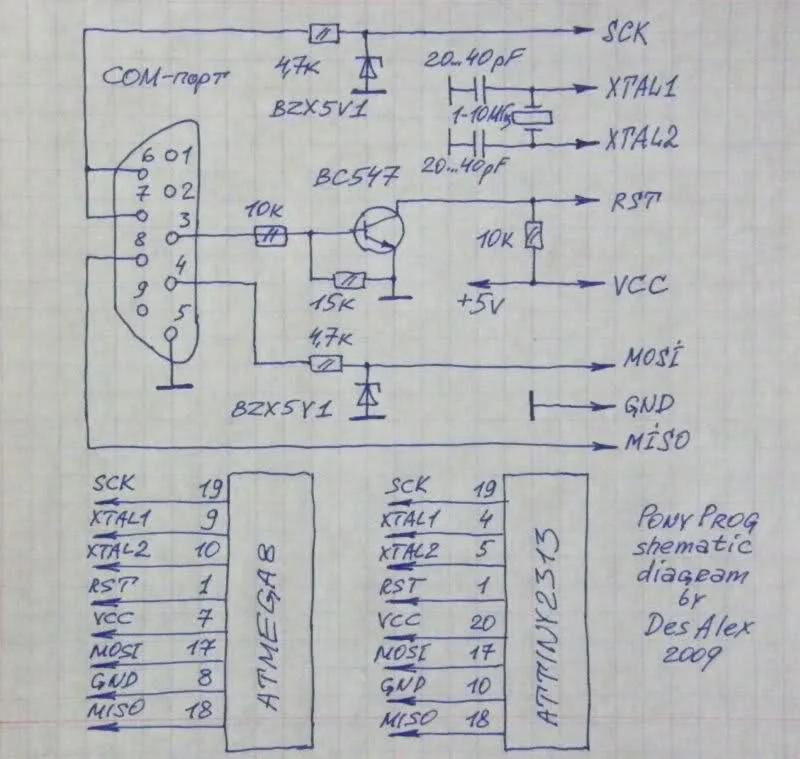 SCK
4,7к
20...40pF
COM-порт
BZX5V1
XTAL1
1-10МГц
XTAL2
20...40pF
6 1
BC547
7 2
10к
RST
3
8
10к
4
15к
+5V
VCC
9
5
4,7к
MOSI
BZX5V1
GND
MISO
SCK 19
XTAL1 9
XTAL2 10
RST 1
VCC 7
MOSI 17
GND 8
MISO 18
ATMEGA8
SCK 19
XTAL1 4
XTAL2 5
RST 1
VCC 20
MOSI 17
GND 10
MISO 18
ATTINY2313
PONY PROG
shematic
diagram
by
Des Alex
2009